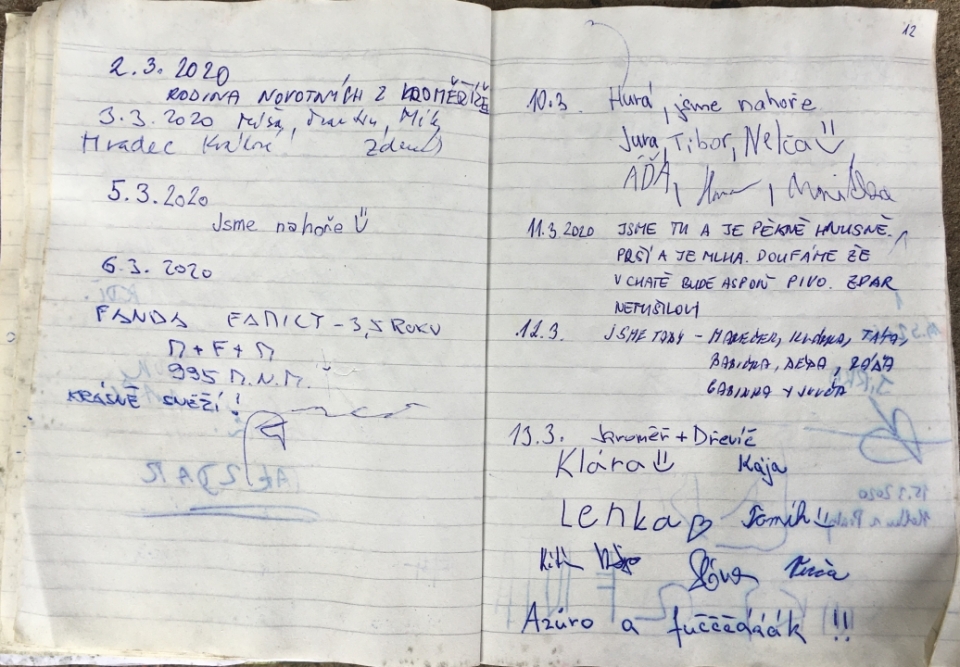 2.3. 2020
RODINA NOVOTNÝCH Z KROMĚŘÍŽE
3.3.2020 Míša,
Hradec Králové Zdeněk
5.3.2020
Jsme nahoře
6.3. 2020
FANDA FAMILY - 3,5 ROKU
M + F + M
995 M.N.M.
KRÁSNĚ SNĚŽÍ!
12
10.3. Hurá, jsme nahoře
Jura, Tibor, Nelča
ÁĎA,
11.3.2020 JSME TU A JE PĚKNĚ HNUSNĚ.
PRŠÍ A JE MLHA. DOUFÁME ŽE
V CHATĚ BUDE ASPOŇ PIVO. ZDAR
NETUŠILOVI
12.3. JSME TADY - MAREČEK, TÁTA,
BABIČKA, DĚDA,
GABINKA
13.3. Jaroměř + Dřevíč
Klára Kája
Lenka Tomík
Azúro a fučááááák !!